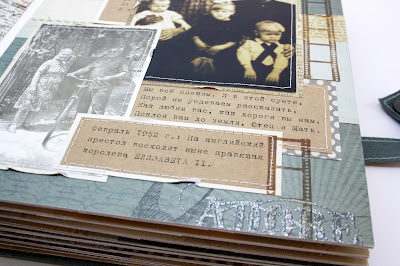 Мы всё спешим. И в этой суете,
Порой не успеваем рассказать,
Как любим вас, как дороги вы нам.
Поклон вам до земли, Отец и Мать.
Февраль 1952 г.: На английский
престол восходит ныне правящая
королева ЕЛИЗАВЕТА II.